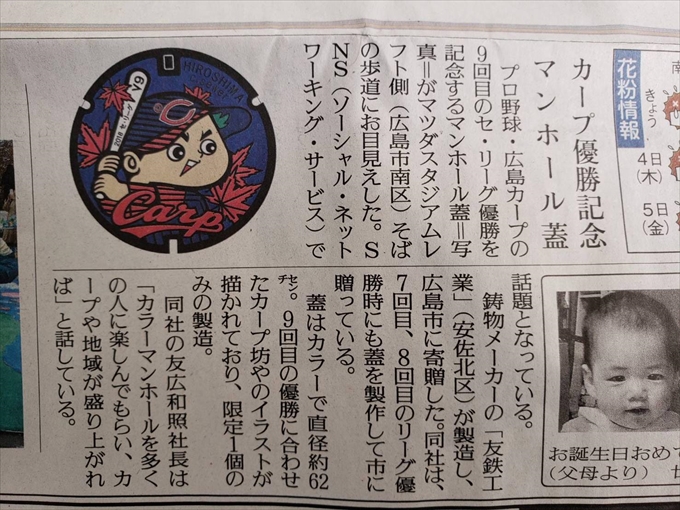 花粉情報
南
きょう
4日
(木)
5日
(金)
カープ優勝記念
マンホール蓋
プロ野球・広島カープの
9回目のセ・リーグ優勝を
記念するマンホール蓋=写
真=がマツダスタジアムレ
フト側(広島市南区)そば
の歩道にお目見えした。S
NS(ソーシャル・ネット
ワーキング・サービス)で
話題となっている。
鋳物メーカーの「友鉄工
業」(安佐北区)が製造し、
広島市に寄贈した。同社は、
7回目、8回目のリーグ優
勝時にも蓋を製作して市に
贈っている。
蓋はカラーで直径約62
㌢。9回目の優勝に合わせ
たカープ坊やのイラストが
描かれており、限定1個の
みの製造。
同社の友広和照社長は
「カラーマンホールを多く
の人に楽しんでもらい、カ
ープや地域が盛り上がれ
ば」と話している。
HIROSHIMA
V9
2018 セ・リーグ
C
Carp
お誕生日おめで
(父母より)